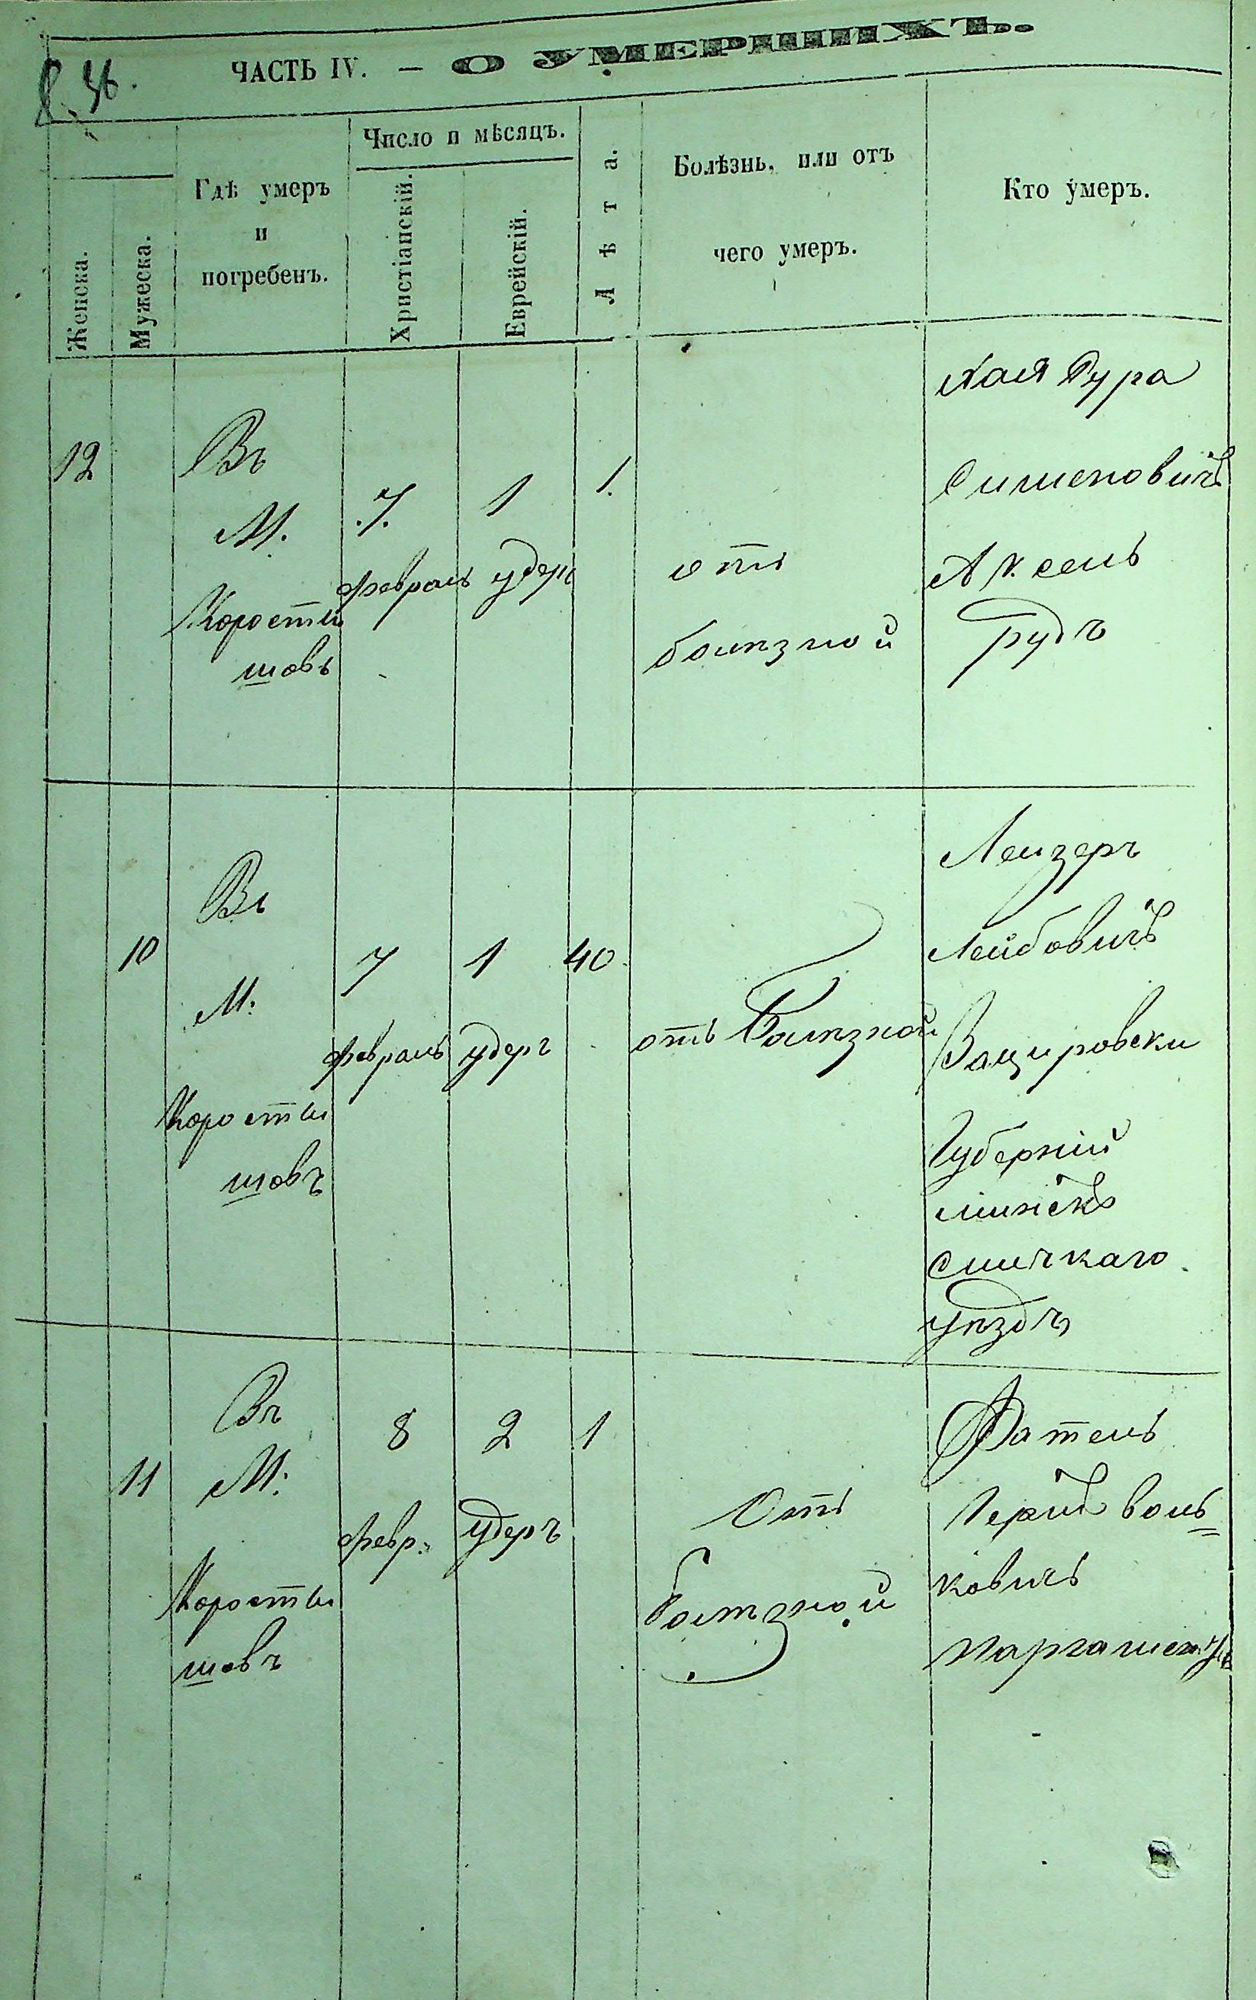 ЧАСТЬ IV. — О УМЕРШИХЪ.
Женска.
Мужеска.
Гдѣ умеръ
и
погребенъ.
Число и мѣсяцъ.
Христіанскій.
Еврейскій.
Лѣта.
Болѣзнь, или отъ
чего умеръ.
Кто умеръ.
12
Въ
М.
Коросты
шовъ
7.
февраль
1
удеръ
1.
отъ
болѣзной
Хая Сура
Симсновичъ
Аксель
рудъ
10
Въ
М.
Коросты
шовъ
7
февраль
1
удеръ
40
отъ Болѣзной
Леизеръ
Лейбовичъ
Губерній
минскъ
уѣздъ
11
Въ
М.
Коросты
шовъ
8
февр.
2
удеръ
1
Отъ
болѣзной
Фатель
воль-
ковичъ